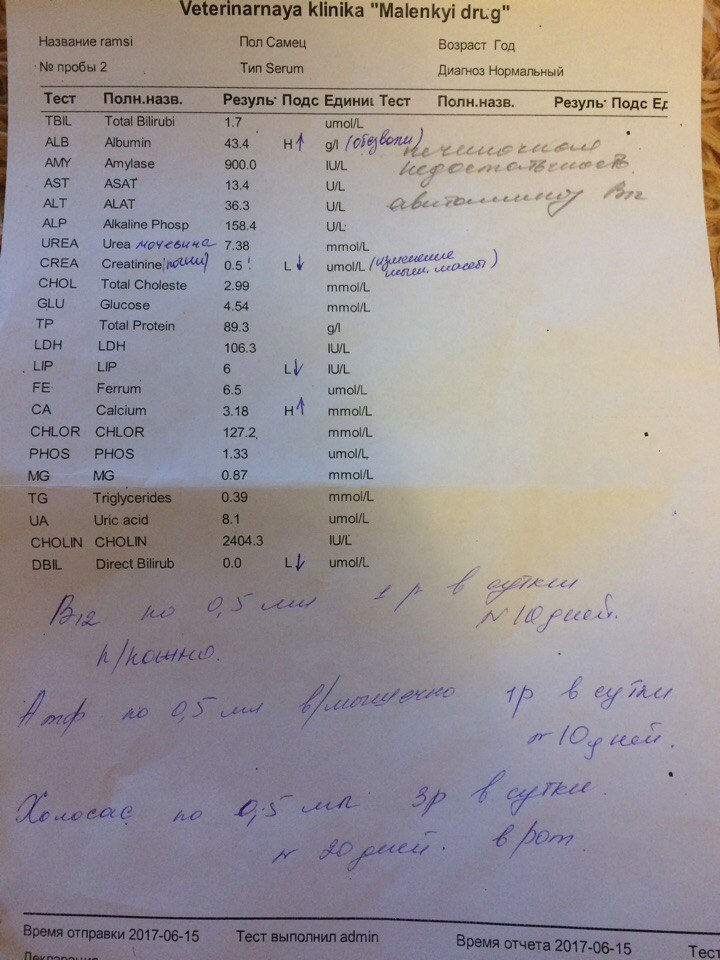 Veterinarnaya klinika "Malenkyi drug"
Название ramsi Пол Самец Возраст Год
№ пробы 2 Тип Serum Диагноз Нормальный
Тест Полн.назв. Резуль Подс Едини Тест Полн.назв. Резуль Подс Ед
TBIL Total Bilirubi 1.7 umol/L
ALB Albumin 43.4 H↑ g/l (обезвож) печеночная
AMY Amylase 900.0 IU/L недостаточность
AST ASAT 13.4 U/L
ALT ALAT 36.3 U/L авитаминоз B12
ALP Alkaline Phosp 158.4 U/L
UREA Urea мочевина 7.38 mmol/L
CREA Creatinine (почки) 0.5 L↓ umol/L (изменение мыш. массы)
CHOL Total Choleste 2.99 mmol/L
GLU Glucose 4.54 mmol/L
TP Total Protein 89.3 g/l
LDH LDH 106.3 IU/L
LIP LIP 6 L↓ IU/L
FE Ferrum 6.5 umol/L
CA Calcium 3.18 H↑ mmol/L
CHLOR CHLOR 127.2 mmol/L
PHOS PHOS 1.33 umol/L
MG MG 0.87 mmol/L
TG Triglycerides 0.39 mmol/L
UA Uric acid 8.1 umol/L
CHOLIN CHOLIN 2404.3 IU/L
DBIL Direct Bilirub 0.0 L↓ umol/L
B12 по 0,5 мл 1 р в сутки
N 10 дней.
п/кожно.
Атф по 0,5 мл в/мышечно 1р в сутки
N 10 дней.
Холосас по 0,5 мл 3р в сутки.
N 20 дней. в рот.
Время отправки 2017-06-15 Тест выполнил admin Время отчета 2017-06-15
Декларация